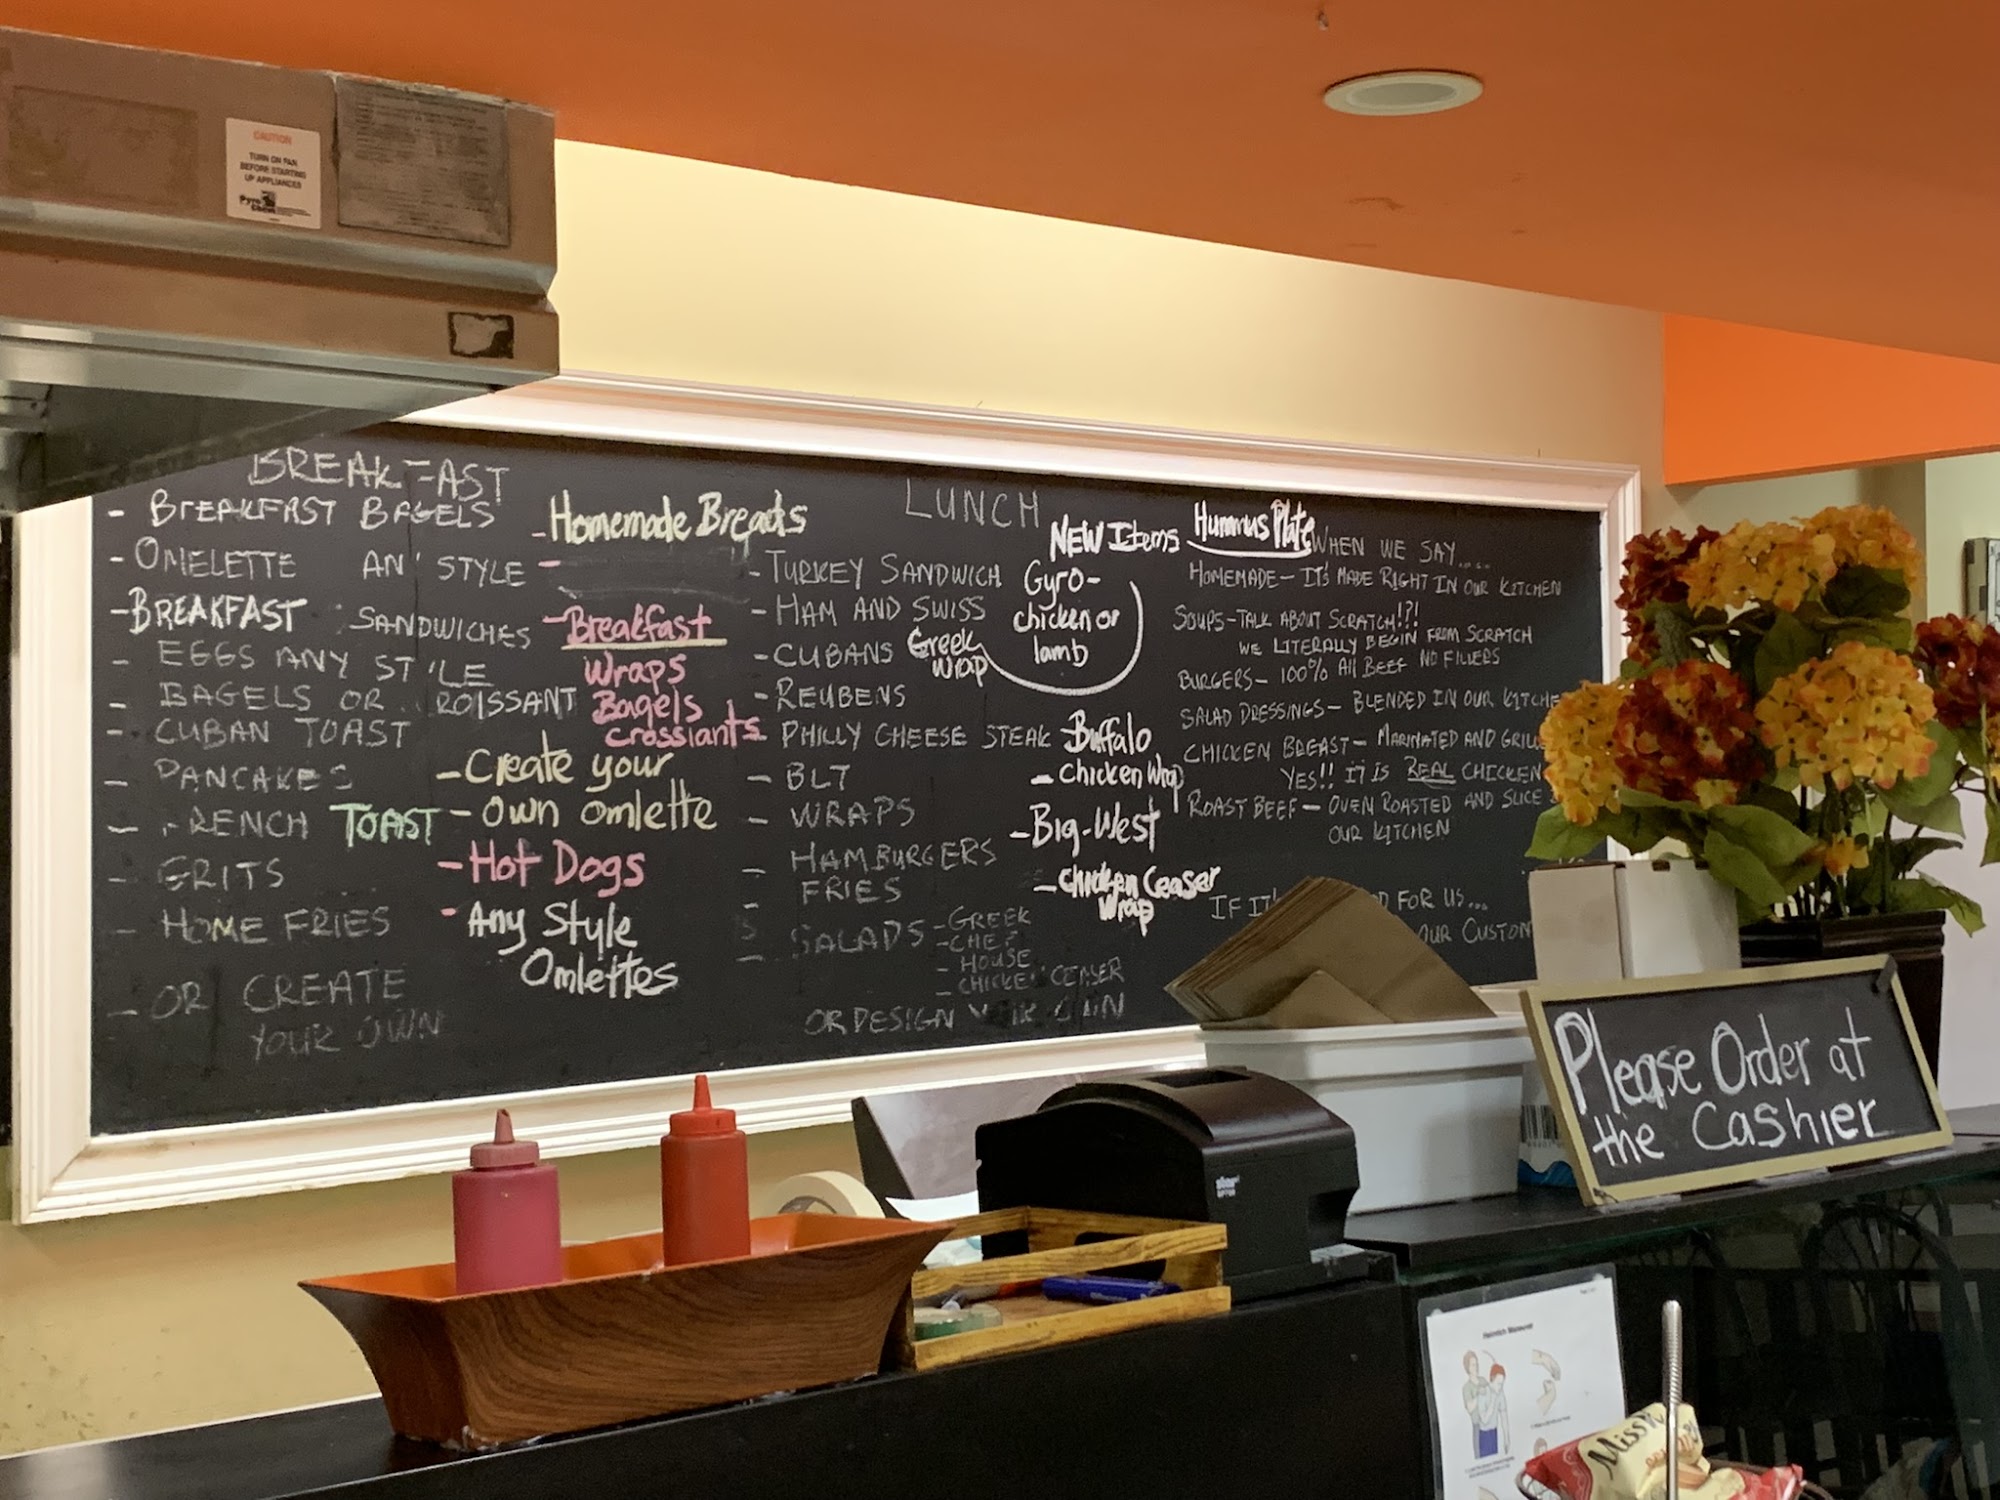 CAUTION
TURN ON FAN
BEFORE STARTING
UP APPLIANCES
BREAK-AST
- BREAKFAST BAGELS
- OMELETTE AN' STYLE
- BREAKFAST SANDWICHES
- EGGS ANY ST'LE
- BAGELS OR ROISSANT
- CUBAN TOAST
- PANCAKES
- RENCH TOAST
- GRITS
- HOME FRIES
- OR CREATE
YOUR OWN
- Homemade Breads
- Breakfast
Wraps
Bagels
crossiants
- Create your
- Own omlette
- Hot Dogs
- Any Style
Omlettes
LUNCH
- TURKEY SANDWICH
- HAM AND SWISS
- CUBANS
- REUBENS
- PHILLY CHEESE STEAK
- BLT
- WRAPS
- HAMBURGERS
- FRIES
- SALADS - GREEK
- CHEF
- HOUSE
- CHICKEN CEASER
OR DESIGN
NEW Items
Gyro-
chicken or
lamb
Greek
wrap
Buffalo
- Chicken Wrap
- Big-West
- Chicken Ceaser
Wrap
Hummus Plate
WHEN WE SAY....
HOMEMADE - IT'S MADE RIGHT IN OUR KITCHEN
SOUPS - TALK ABOUT SCRATCH!?!
WE LITERALLY BEGIN FROM SCRATCH
BURGERS - 100% All BEEF NO FILLERS
SALAD DRESSINGS - BLENDED IN OUR KITCHE
CHICKEN BREAST - MARINATED AND GRILL
YES!! IT IS REAL CHICKEN
ROAST BEEF - OVEN ROASTED AND SLICE
OUR KITCHEN
IF IT' D FOR US...
OUR CUSTOM
Please Order at
the Cashier
star
Heimlich Maneuver
Miss